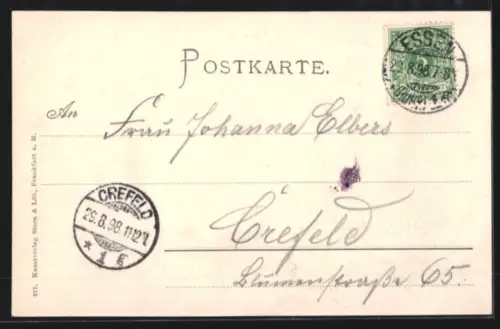 POSTKARTE.
ESSEN
An
Frau Johanna Elbers
CREFELD
29.8.98.11-12V
* 1 g
Crefeld
Blumenstraße 65.
221. Kunstverlag Stern & Löb, Frankfurt a. M.